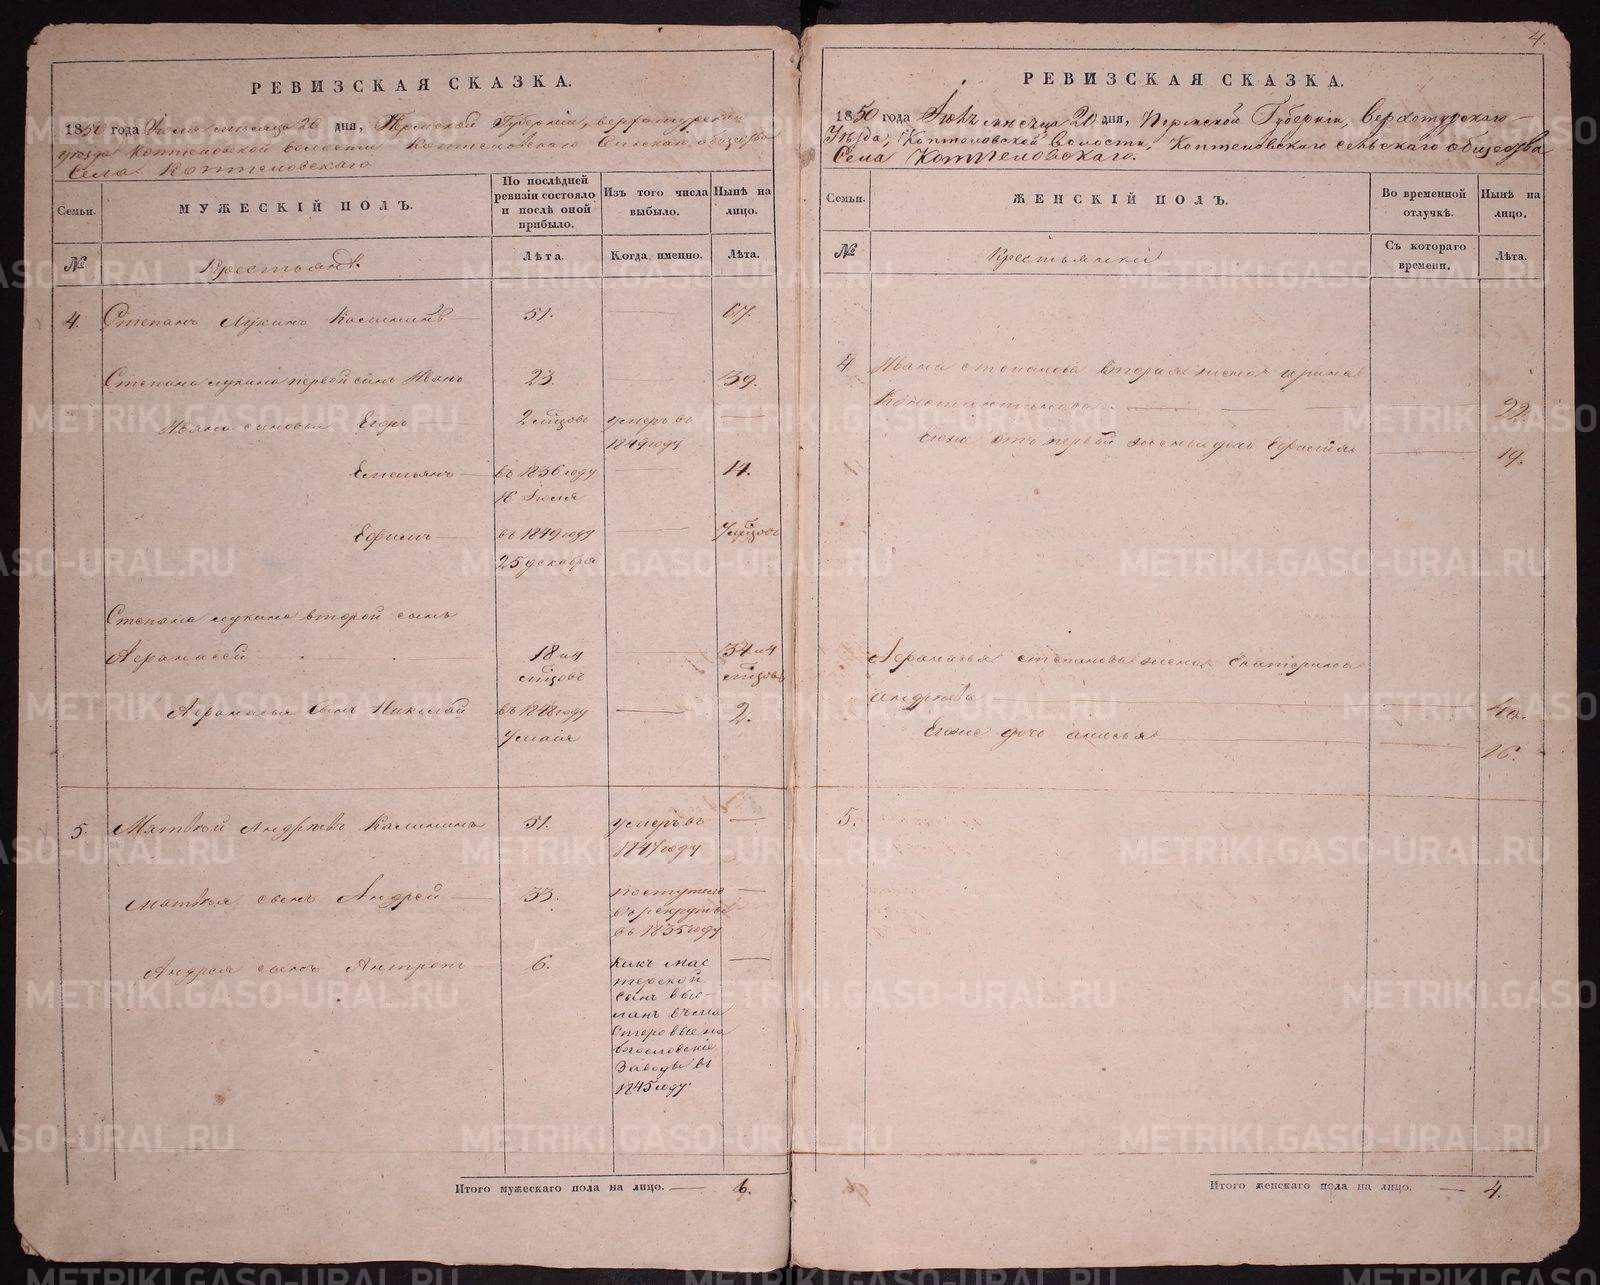 РЕВИЗСКАЯ СКАЗКА.
1850 года Июня месяца 20 дня, Пермской Губернiи, Верхотурскаго
уезда Коптеловской волости Коптеловскаго Сельскаго общества
Села Коптеловскаго
Семьи.
МУЖЕСКIЙ ПОЛЪ.
По послѣдней ревизiи состояло и послѣ оной прибыло.
Изъ того числа выбыло.
Нынѣ на лицо.
№
Крестьянъ
Лѣта.
Когда именно.
Лѣта.
4. Степанъ Лукинъ Калининъ 51. 67.
Степана лукина первой сынъ Иванъ 23 39.
Ивана сыновья Егоръ 2 мѣсяцовъ умеръ въ
1849 году
Емельянъ въ 1836 году 14.
16 Iюля
Ефимъ въ 1849 году 7 мѣсяцовъ
25 декабря
Степана лукина второй сынъ
Афанасей 18 и 4 34 и 4
мѣсяцовъ мѣсяцовъ
Афанасья сынъ Николай въ 1848 году 2.
9 мая
5. Матвѣй Андрѣевъ Калининъ 51. умеръ въ
1847 году
Матвѣя сынъ Андрей 33. поступилъ
въ рекруты
въ 1835 году
Андрея сынъ Антропъ 6. Какъ мас
терской
сынъ выс-
ланъ въ ма
стеровые на
богословскiе
Заводы въ
1845 году.
Итого мужескаго пола на лицо. 6.
4.
РЕВИЗСКАЯ СКАЗКА.
1850 года Iюня месяца 20 дня, Пермской Губернiи, Верхотурскаго
Уѣзда, Коптеловской Волости, Коптеловскаго сельскаго общества
Села Коптеловскаго.
Семьи.
ЖЕНСКIЙ ПОЛЪ.
Во временной отлучкѣ.
Нынѣ на лицо.
№
Крестьянки
Съ котораго времени.
Лѣта.
4. Ивана степанова вторая жена ирина
Константинова 22.
Егоже отъ первой жены дочь
19.
Афанасья степанова жена Екатерина
андрѣева 40.
Егоже дочь анисья
16.
5.
Итого женскаго пола на лицо. 4.
METRIKI.GASO-URAL.RU